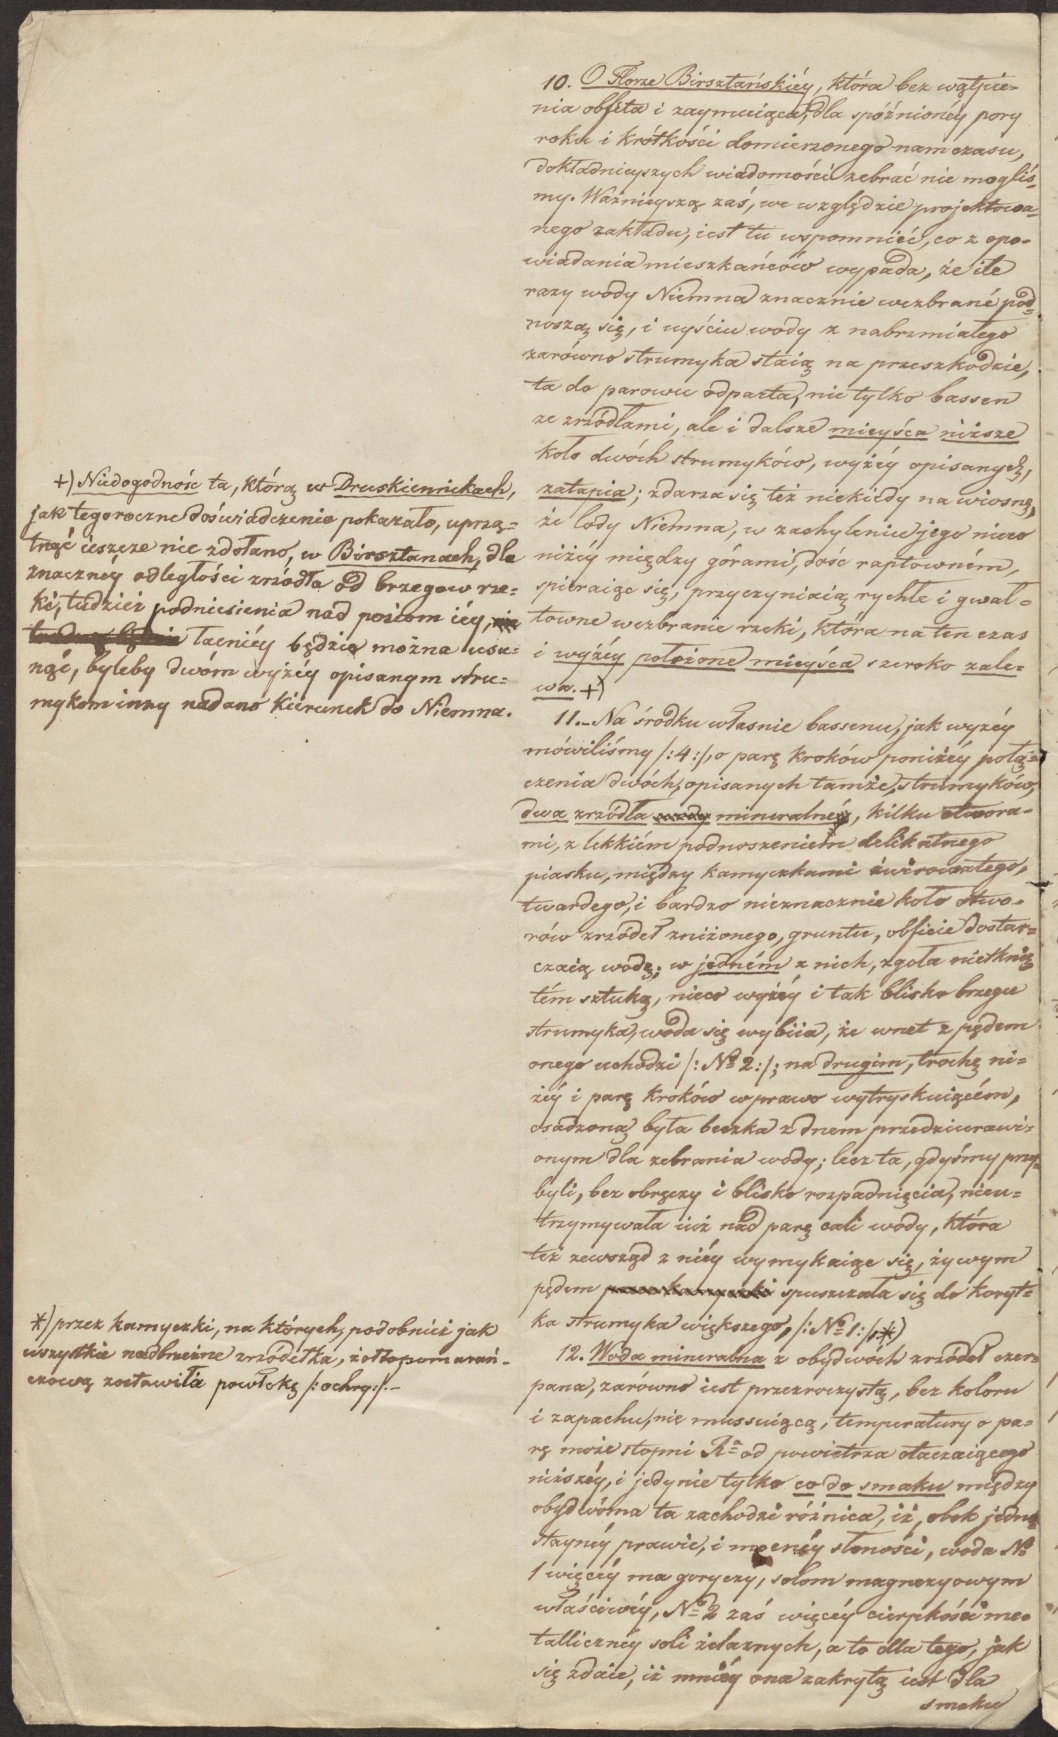 10. O Florze Birsztańskiéy, która bez wątpie=
nia obfita i zaymuiąca, dla spóźnionéy pory
roku i krótkości domierzonego nam czasu,
dokładnieyszych wiadomości zebrać nie mogliś=
my. Ważnieyszą zaś, we względzie projektowa=
nego zakładu, iest tu wspomnieć, co z opo=
wiadania mieszkańców wypada, że ile
razy wody Niemna znacznie wezbrané pod=
noszą się, i uyściu wody z nabrzmiałego
zarówno strumyka staią na przeszkodzie,
ta do parowu odparta, nie tylko bassen
ze zrzódłami, ale i dalsze mieysca niższe
koło dwóch strumyków, wyżéy opisanych,
zatapia; zdarza się też niekiedy na wiosnę,
że lody Niemna, w zachyleniu jego nieco
niżéy między górami, dość raptowném,
spieraiąc się, przyczyniaią rychłe i gwał=
towne wezbranie rzeki, która na ten czas
i wyżéy położone mieysca szeroko zale=
wa. +)
+) Niedogodność ta, którą w Druskiennickach,
jak tegoroczne doświadczenie pokazało, uprzą=
tnąć ieszcze nie zdołano, w Birsztanach, dla
znacznéy odległości zrzódła od brzegow rze=
ki, tudzież podniesienia nad poziom iéy,
łacniéy będzie można usu=
nąć, byleby dwóm wyżéy opisanym stru=
mykom inny nadano kierunek do Niemna.
11. Na środku własnie bassenu, jak wyżéy
mówiliśmy /:4:/, o parę kroków poniżéy połą=
czenia dwóch, opisanych tamże, strumyków,
dwa zrzódła wody mineralnéy, kilku otwora=
mi, z lekkiém podnoszeniem delikatnego
piasku, między kamyczkami żwirowatego,
twardego, i bardzo nieznacznie koło otwo=
rów zrzódeł zniżonego, gruntu, obficie dostar=
czaią wodę; w jedném z nich, zgoła nietknię
tém sztuką, nieco wyżéy i tak blisko brzegu
strumyka, woda się wybiia, że wnet z pędem
onego uchodzi /:No 2:/; na drugim, trochę ni=
żéy i parę kroków w prawo wytryskuiącém,
osadzoną była beczka z dnem przedziurawi=
onym dla zebrania wody; lecz ta, gdyśmy przy=
byli, bez obręczy i blisko rozpadnięcia, nieu=
trzymywała iuż nad parę cali wody, która
też zewsząd z niéy wymykaiąc się, żywym
pędem spuszczała się do koryt=
ka strumyka większego, /:No 1:/, *)
*) przez kamyczki, na których, podobnież jak
wszystkie nadbrzeżne zrzódełka, żółtopomarań=
czową zostawiła powłokę /:ochrę:/.–
12. Woda mineralna z obydwóch zrzódeł czer=
pana, zarówno iest przezroczystą, bez koloru
i zapachu, nie mussuiącą, temperatury o pa=
rę może stopni Ra od powietrza otaczaiącego
niższéy, i jedynie tylko co do smaku między
obydwóma ta zachodzi różnica, iż, obok jedno
staynéy prawie, i mocnéy słoności, woda No
1 więcéy ma goryczy, solom magnezyowym
właściwéy, No 2 zaś więcéy cierpkości me=
talliczney soli żelaznych, a to dla tego, jak
się zdaie, iż mniéy ona zakrytą iest dla
smaku